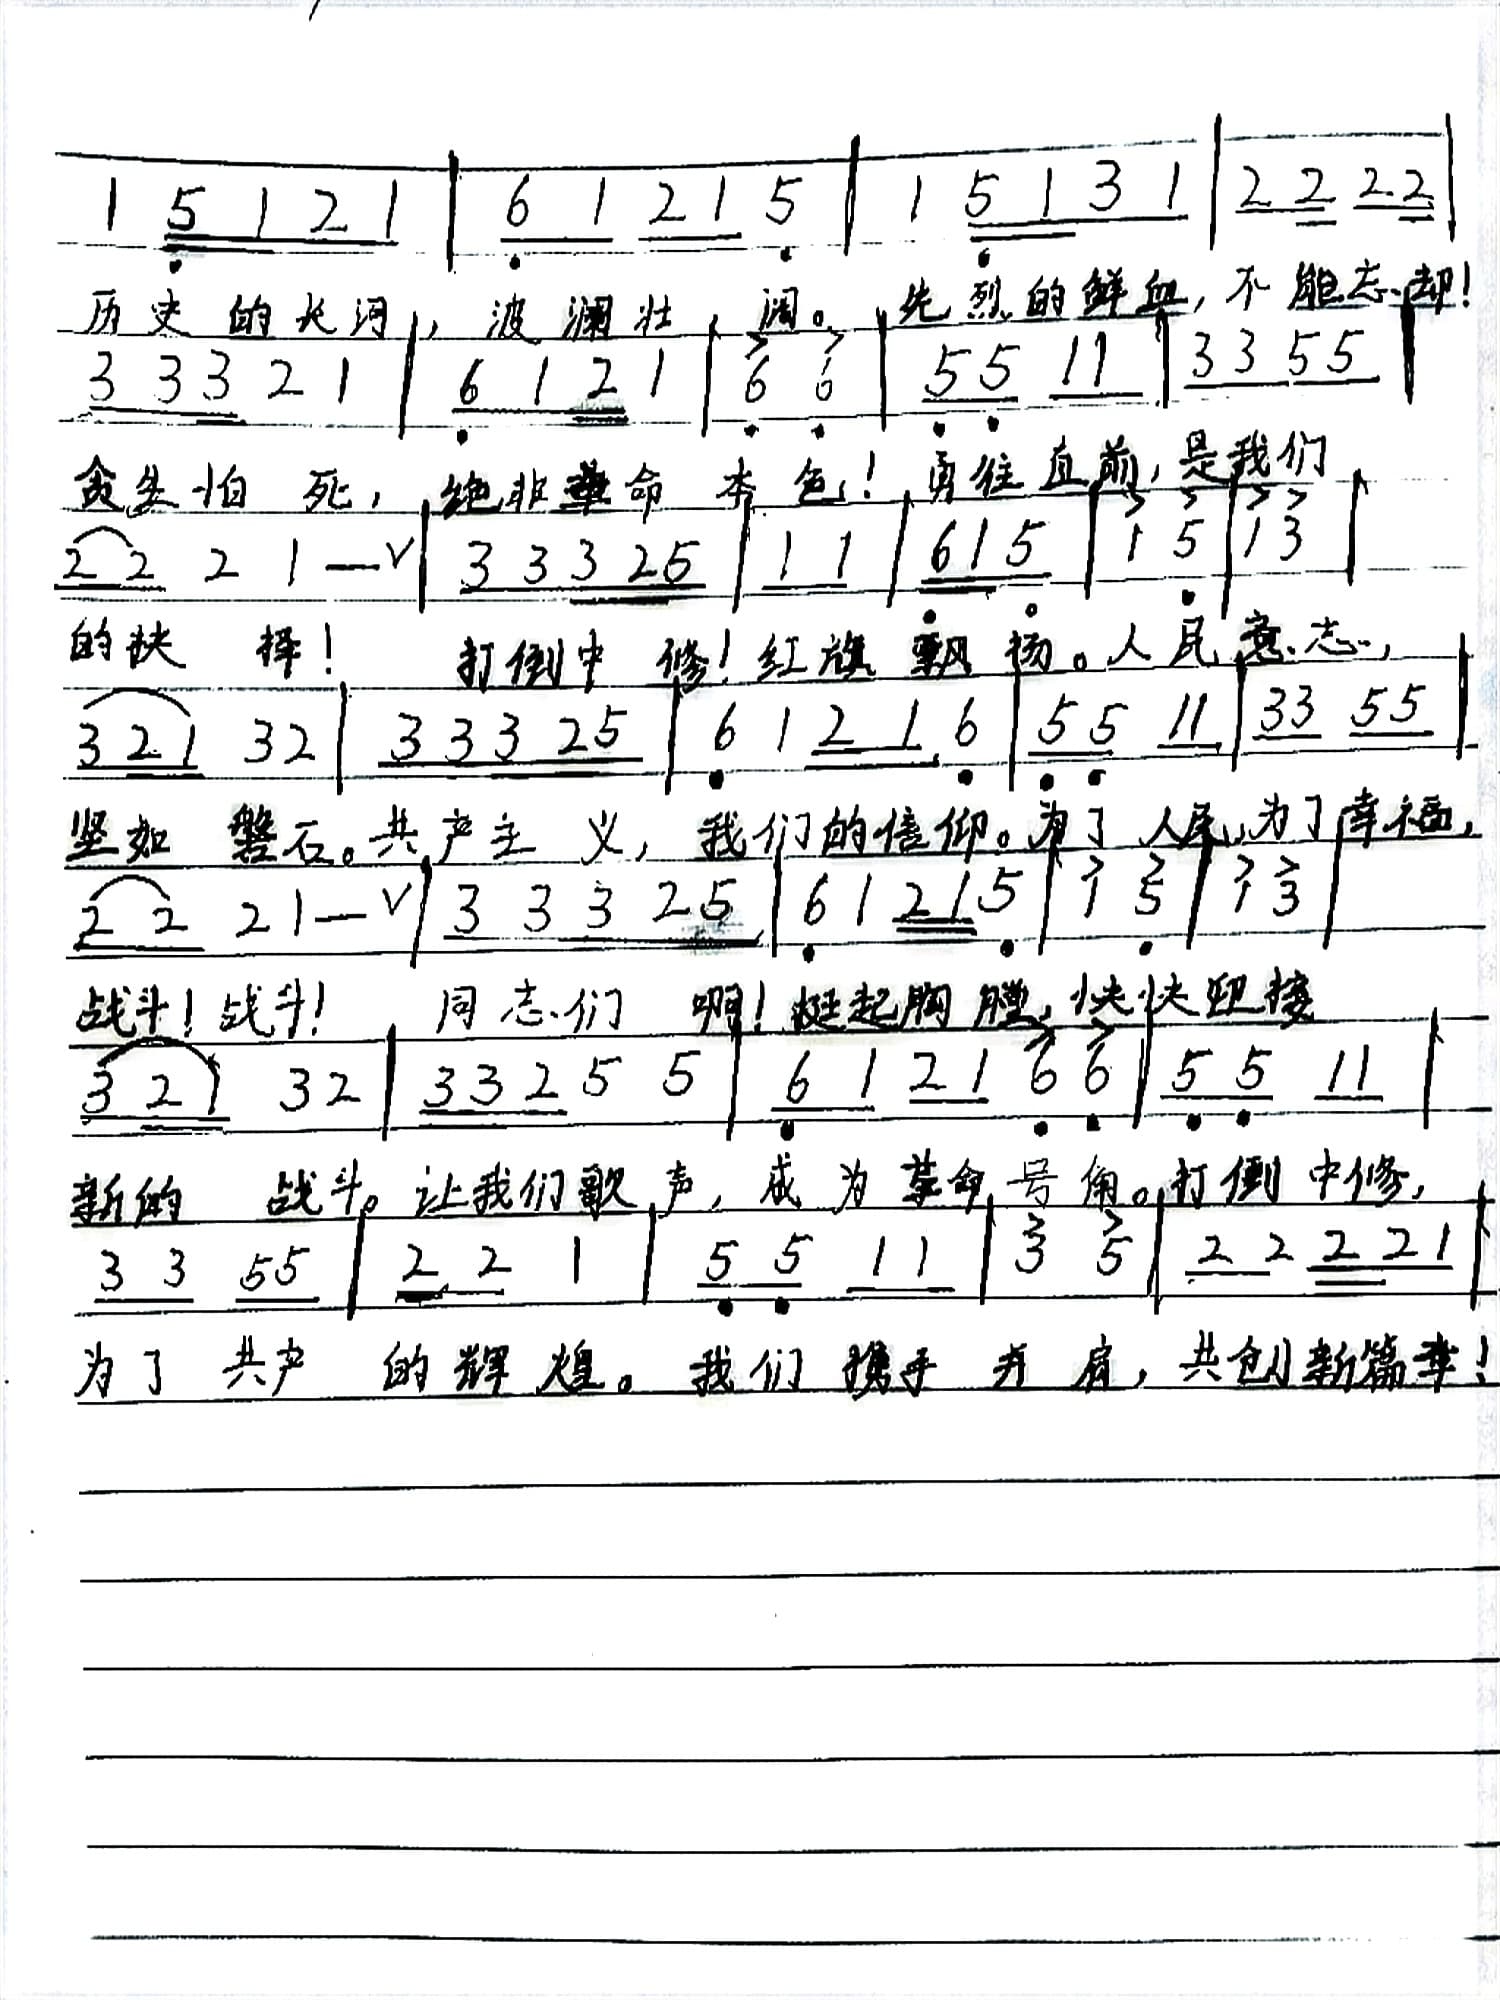 1 5 1 2 1 | 6 1 2 1 5 | 1 5 1 3 1 | 2 2 2 2 |
历史的长河，波澜壮阔。先烈的鲜血，不能忘却！
3 3 3 2 1 | 6 1 2 1 | 6 6 | 5 5 1 1 | 3 3 5 5 |
贪生怕死，绝非革命本色！勇往直前，是我们
2 2 2 1 — V | 3 3 3 2 5 | 1 1 | 6 1 5 | 1 5 | 1 3 |
的抉择！打倒中修！红旗飘扬。人民意志，
3 2 1 3 2 | 3 3 3 2 5 | 6 1 2 1 6 | 5 5 1 1 | 3 3 5 5 |
坚如磐石。共产主义，我们的信仰。为了人民，为了幸福，
2 2 2 1 — V | 3 3 3 2 5 | 6 1 2 1 5 | 1 5 | 1 3 |
战斗！战斗！同志们啊！挺起胸膛，快快迎接
3 2 1 3 2 | 3 3 2 5 5 | 6 1 2 1 6 6 | 5 5 1 1 |
新的战斗。让我们歌声，成为革命号角。打倒中修，
3 3 5 5 | 2 2 1 | 5 5 1 1 | 3 5 | 2 2 2 2 1 |
为了共产的辉煌。我们携手并肩，共创新篇章！